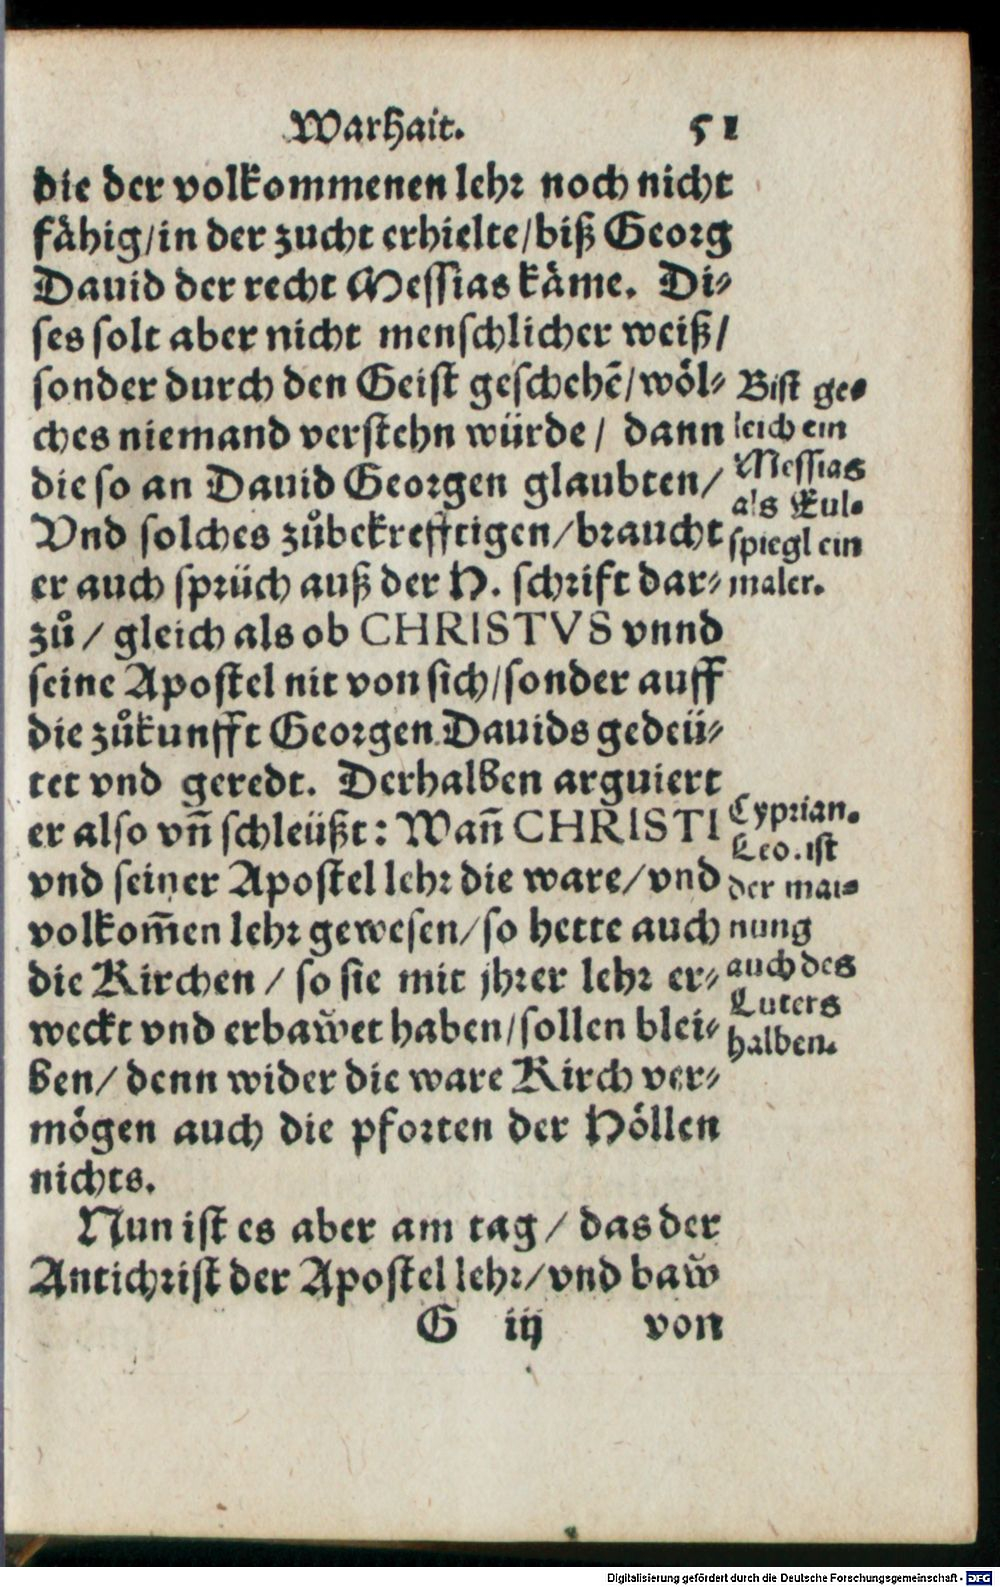 Warhait. 51
die der volkommenen lehr noch nicht
fähig/in der zucht erhielte/biß Georg
Dauid der recht Messias käme. Di-
ses solt aber nicht menschlicher weiß/
sonder durch den Geist geschehē/wöl-
ches niemand verstehn würde/ dann
die so an Dauid Georgen glaubten/
Vnd solches zůbekrefftigen/braucht
er auch sprüch auß der H. schrift dar-
zů/ gleich als ob CHRISTVS vnnd
seine Apostel nit von sich/sonder auff
die zůkunfft Georgen Dauids gedeü-
tet vnd geredt. Derhalben arguiert
er also vñ schleüßt: Wañ CHRISTI
vnd seiner Apostel lehr die ware/vnd
volkom̃en lehr gewesen/so hette auch
die Kirchen/ so sie mit jhrer lehr er-
weckt vnd erbaw̆et haben/sollen blei-
ben/ denn wider die ware Kirch ver-
mögen auch die pforten der Höllen
nichts.
Nun ist es aber am tag/ das der
Antichrist der Apostel lehr/vnd baw̆
G iij von
Bist ge-
leich ein
Messias
als Eul-
spiegl ein
maler.
Cyprian.
Leo. ist
der mai-
nung
auch des
Luters
halben.
Digitalisierung gefördert durch die Deutsche Forschungsgemeinschaft - DFG